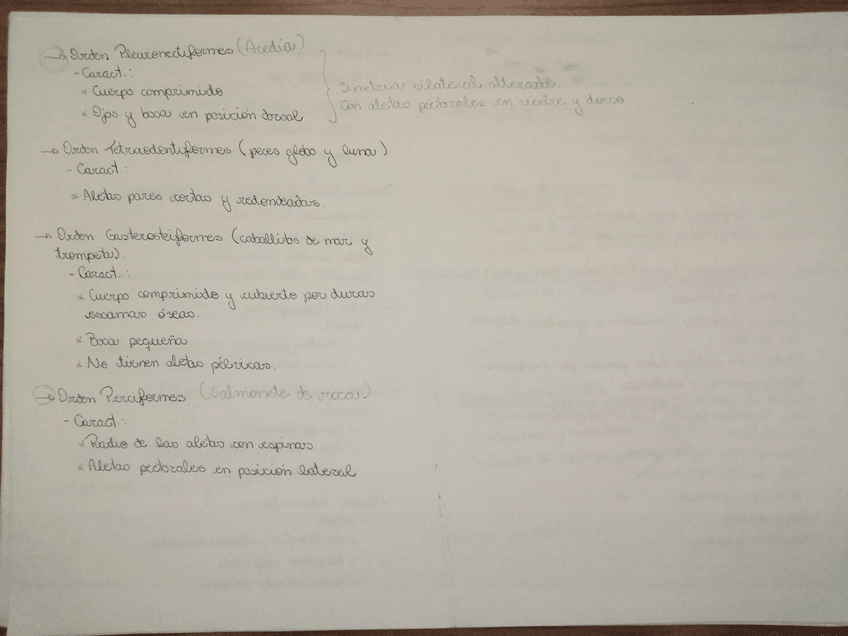 → Orden Pleuronectiformes (Acedia)
- Caract.:
* Cuerpo comprimido
* Ojos y boca en posición dorsal
Simetria bilateral alterada.
Con aletas pectorales en vientre y dorso.
→ Orden Tetraodontiformes (peces globo y luna)
- Caract.:
* Aletas pares cortas y redondeadas.
→ Orden Gasterosteiformes (caballitos de mar y
trompeta).
- Caract.:
* Cuerpo comprimido y cubierto por duras
escamas óseas.
* Boca pequeña
* No tienen aletas pélvicas.
→ Orden Perciformes (Salmonete de roca)
- Caract.:
* Radio de las aletas con espinas
* Aletas pectorales en posición lateral